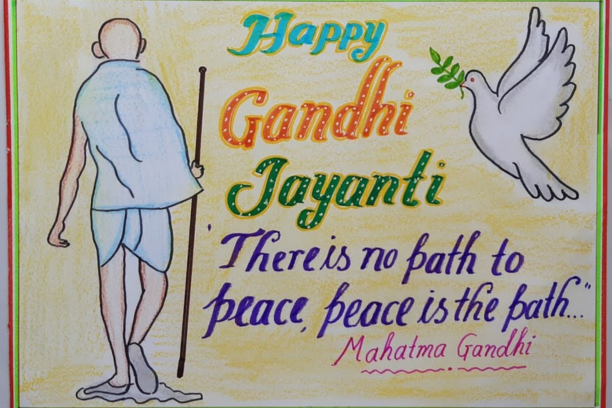 Happy
Gandhi
Jayanti
'There is no path to
peace, peace is the path..."
Mahatma Gandhi